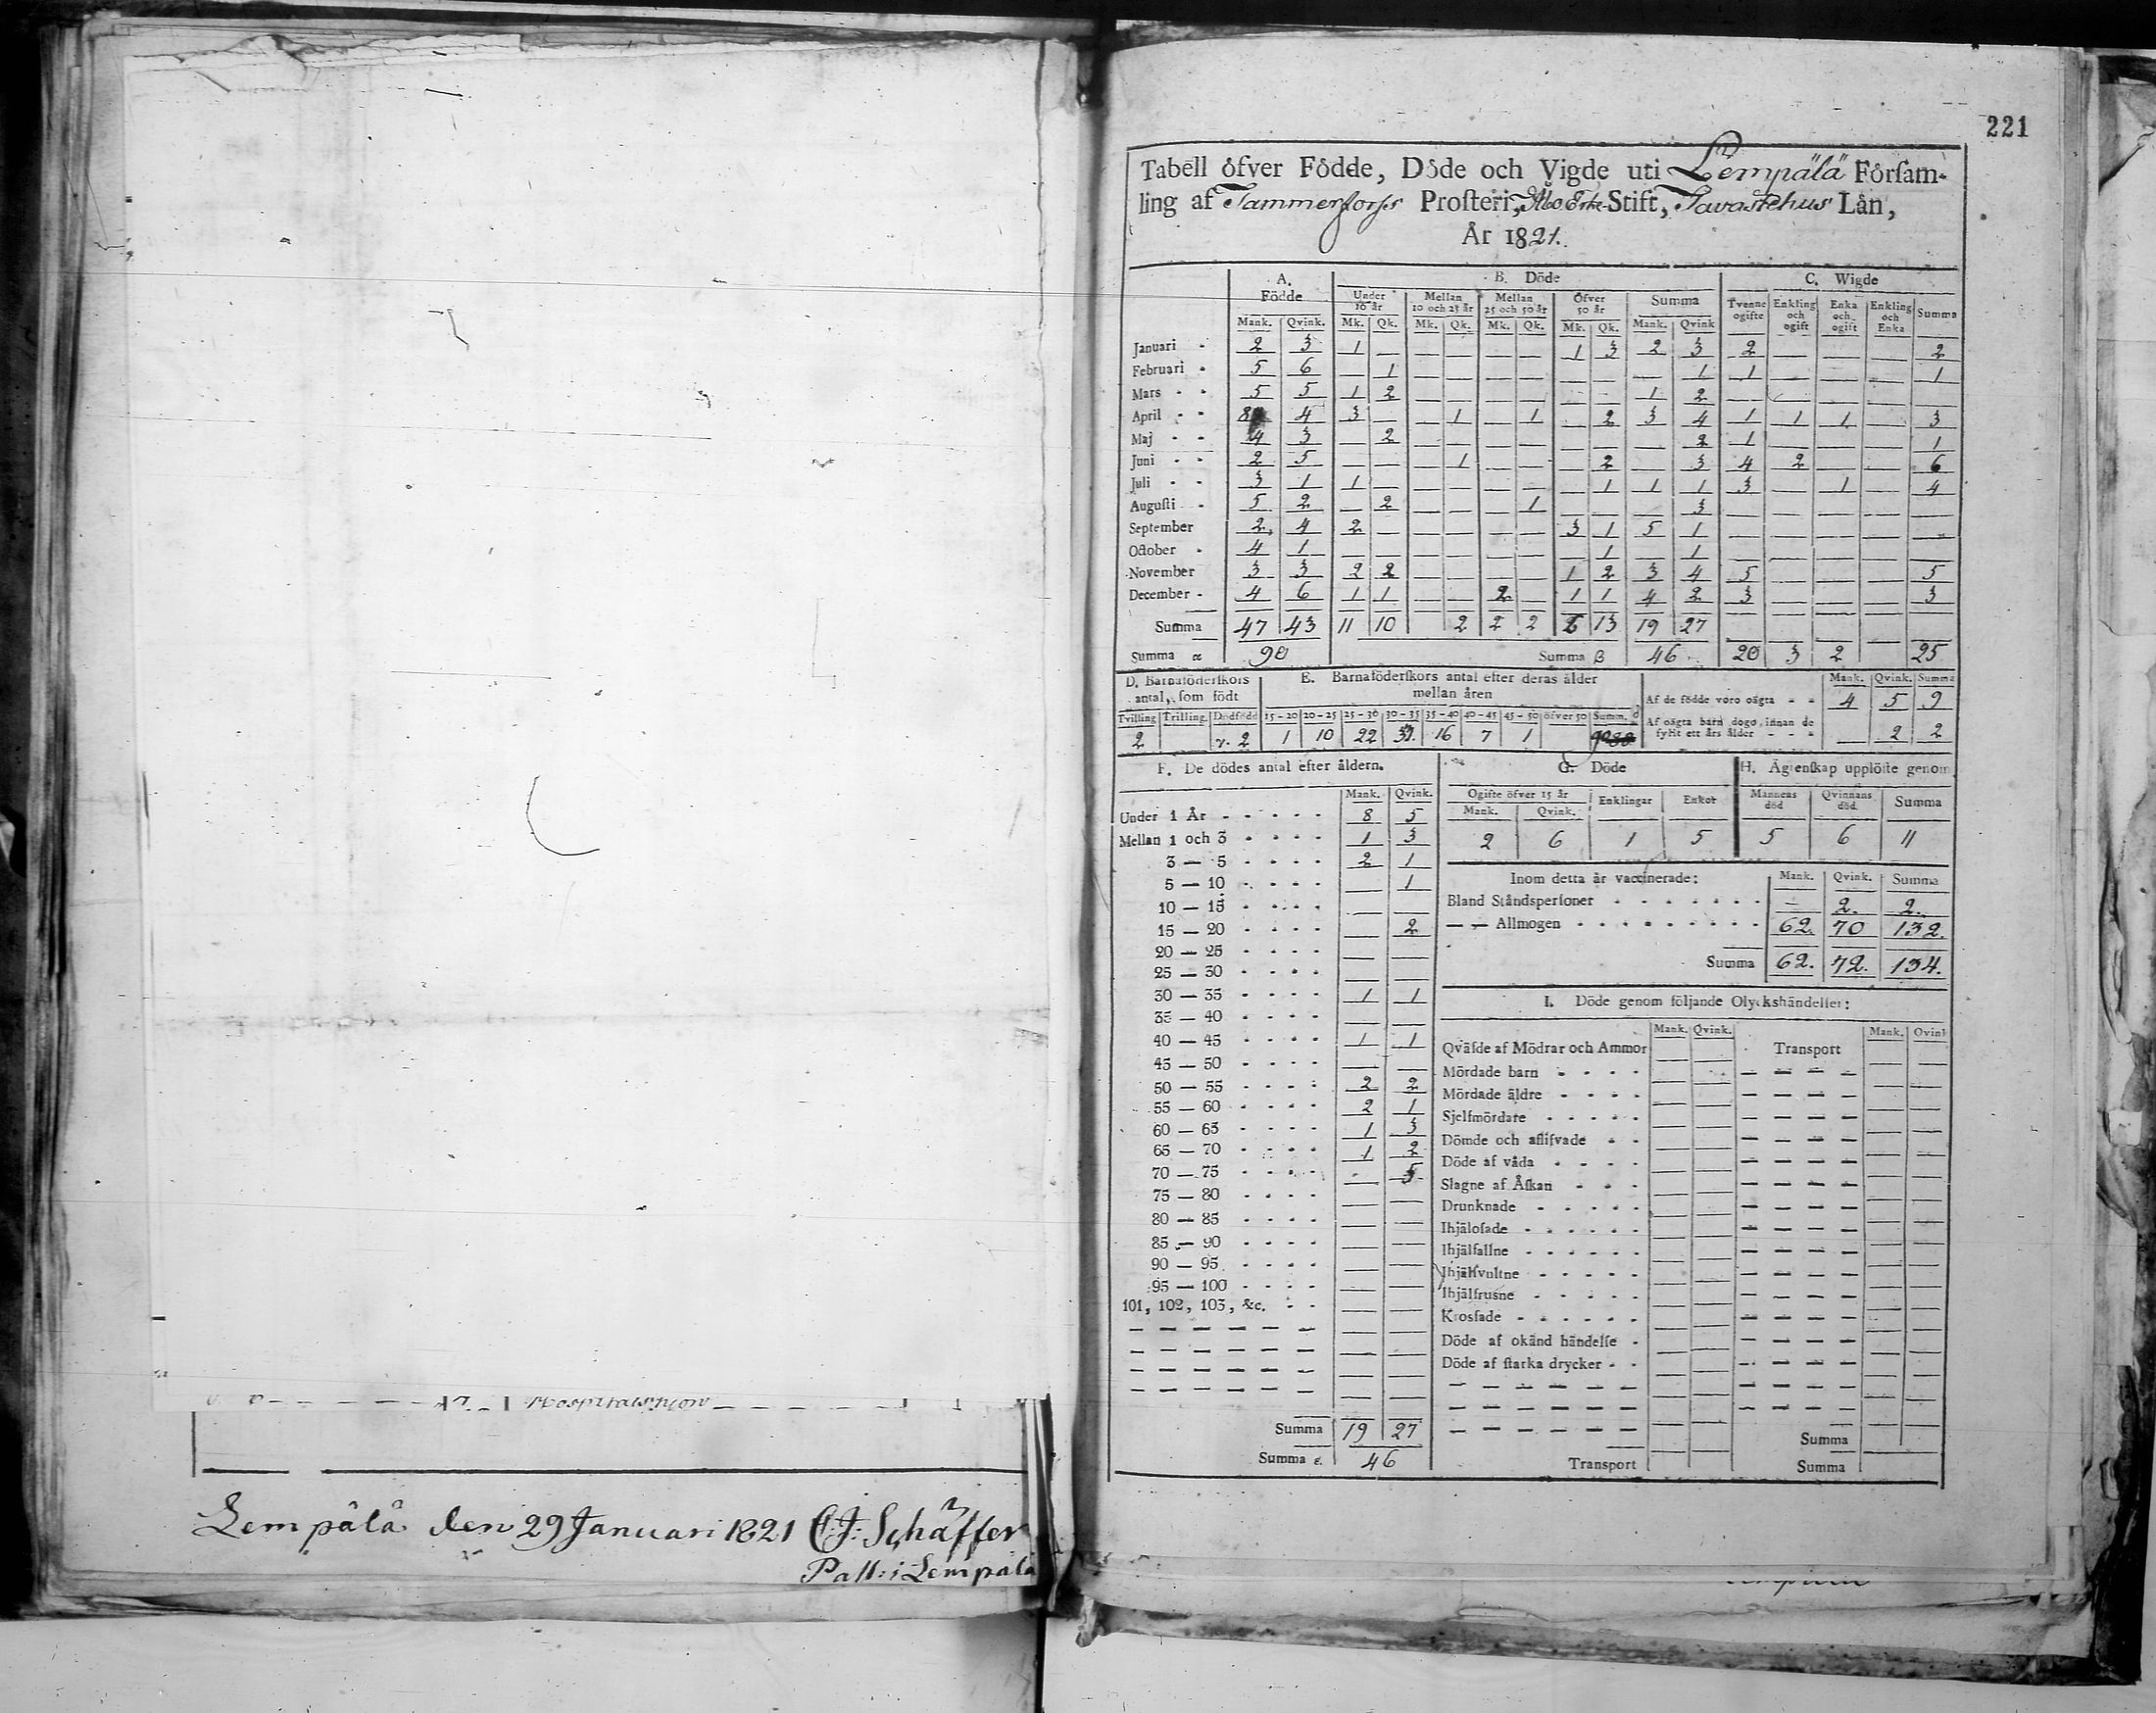 Hospitalshjon
Lempälä den 29 Januari 1821 C.J. Schäffer
Past: i Lempälä
221
Tabell öfver Födde, Döde och Vigde uti Lempälä Förſam-
ling af Tammerforss Proſteri, Åbo Erke-Stift, Tavastehus Län,
År 1821.
A. Födde B. Döde C. Wigde
Under 10 år Mellan 10 och 25 år Mellan 25 och 50 år Öfver 50 år Summa Tvenne ogifte Enkling och ogift Enka och ogift Enkling och Enka Summa
Mank. Qvink. Mk. Qk. Mk. Qk. Mk. Qk. Mk. Qk. Mank. Qvink
Januari - 2 3 1 — — — — — 1 3 2 3 2 — — — 2
Februari - 5 6 — 1 — — — — — — — 1 1 — — — 1
Mars - - 5 5 1 2 — — — — — — 1 2 — — — — —
April - - 8 4 3 — — 1 — 1 — 2 3 4 1 1 1 — 3
Maj - - 4 3 — 2 — — — — — — — 2 1 — — — 1
Juni - - 2 5 — — — 1 — — — 2 — 3 4 2 — — 6
Juli - - 3 1 1 — — — — — — 1 1 1 3 — 1 — 4
Auguſti - 5 2 — 2 — — — 1 — — — 3 — — — — —
September 2 4 2 — — — — — 3 1 5 1 — — — — —
October - 4 1 — — — — — — — 1 — 1 — — — — —
November 3 3 2 2 — — — — 1 2 3 4 5 — — — 5
December - 4 6 1 1 — — 2 — 1 1 4 2 3 — — — 3
Summa 47 43 11 10 2 2 2 6 13 19 27
Summa α 90 Summa β 46 20 3 2 25
D. Barnaföderſkors antal, ſom födt
E. Barnaföderſkors antal efter deras ålder mellan åren
Mank. Qvink. Summa
Af de födde voro oägta - - 4 5 9
Tvilling Trilling. Dödfödd 15-20 20-25 25-30 30-35 35-40 40-45 45-50 öfver 50 Summ. δ
2 2 1 10 22 31. 16 7 1
Af oägta barn dogo, innan de
fyllt ett års ålder - - - — 2 2
F. De dödes antal efter åldern.
Mank. Qvink.
Under 1 År - - - - - 8 5
Mellan 1 och 3 - - - - 1 3
3 — 5 - - - - 2 1
5 — 10 - - - - — 1
10 — 15 - - - - — —
15 — 20 - - - - — 2
20 — 25 - - - - — —
25 — 30 - - - - — —
30 — 35 - - - - 1 1
35 — 40 - - - - — —
40 — 45 - - - - 1 1
45 — 50 - - - - — —
50 — 55 - - - - 2 2
55 — 60 - - - - 2 1
60 — 65 - - - - 1 3
65 — 70 - - - - 1 2
70 — 75 - - - - — 5
75 — 80 - - - - — —
80 — 85 - - - - — —
85 — 90 - - - - — —
90 — 95 - - - - — —
95 — 100 - - - - — —
101, 102, 103, &c. - - — —
Summa 19 27
Summa ε. 46
G. Döde
Ogifte öfver 15 år Enklingar Enkor
Mank. Qvink.
2 6 1 5
H. Ägtenſkap upplöſte genom
Mannens död Qvinnans död. Summa
5 6 11
Inom detta år vaccinerade: Mank. Qvink. Summa
Bland Ståndsperſoner - - - - - - - — 2. 2.
— — Allmogen - - - - - - - - - 62. 70 132.
Summa 62. 72. 134.
I. Döde genom följande Olyckshändelſer:
Mank. Qvink. Mank. Qvink
Qväfde af Mödrar och Ammor — — Transport
Mördade barn - - - - — —
Mördade äldre - - - - — —
Sjelfmördare - - - - - — —
Dömde och afliſvade - - — —
Döde af våda - - - - — —
Slagne af Åſkan - - - — —
Drunknade - - - - - — —
Ihjälofade - - - - - - — —
Ihjälfallne - - - - - - — —
Ihjälſvultne - - - - - — —
Ihjälfrusne - - - - - — —
Krosſade - - - - - - — —
Döde af okänd händelſe - — —
Döde af ſtarka drycker - - — —
Summa
Transport Summa